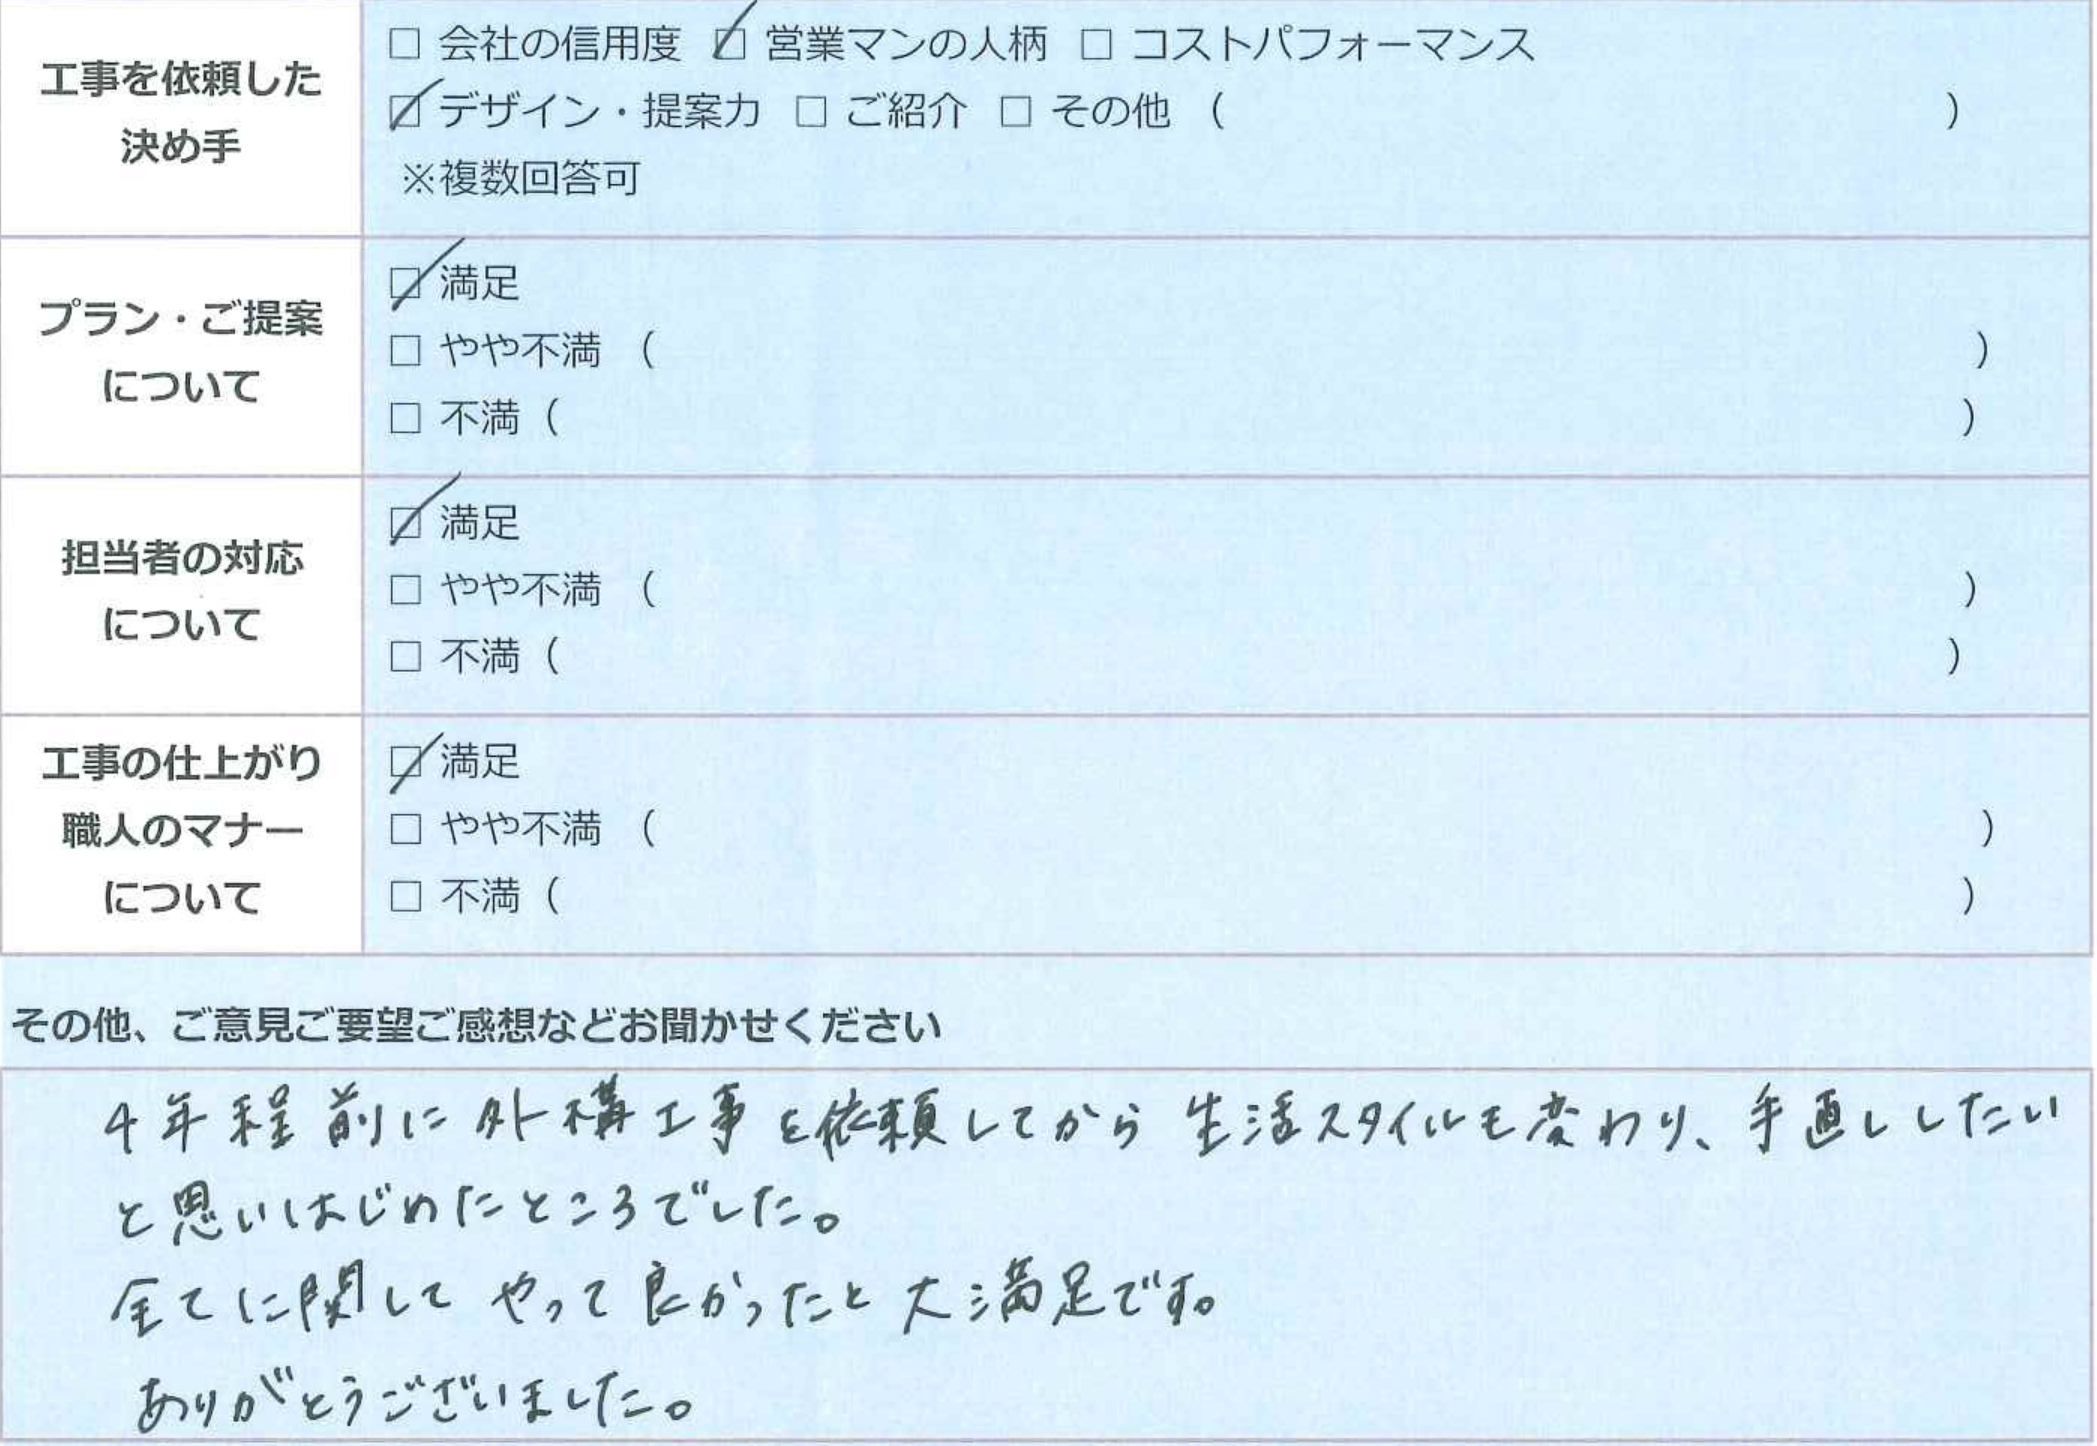 工事を依頼した
決め手
□ 会社の信用度 ☑ 営業マンの人柄 □ コストパフォーマンス
☑ デザイン・提案力 □ ご紹介 □ その他 ( )
※複数回答可
プラン・ご提案
について
☑ 満足
□ やや不満 ( )
□ 不満 ( )
担当者の対応
について
☑ 満足
□ やや不満 ( )
□ 不満 ( )
工事の仕上がり
職人のマナー
について
☑ 満足
□ やや不満 ( )
□ 不満 ( )
その他、ご意見ご要望ご感想などお聞かせください
4年程前に外構工事を依頼してから生活スタイルも変わり、手直ししたい
と思いはじめたところでした。
全てに関してやって良かったと大満足です。
ありがとうございました。